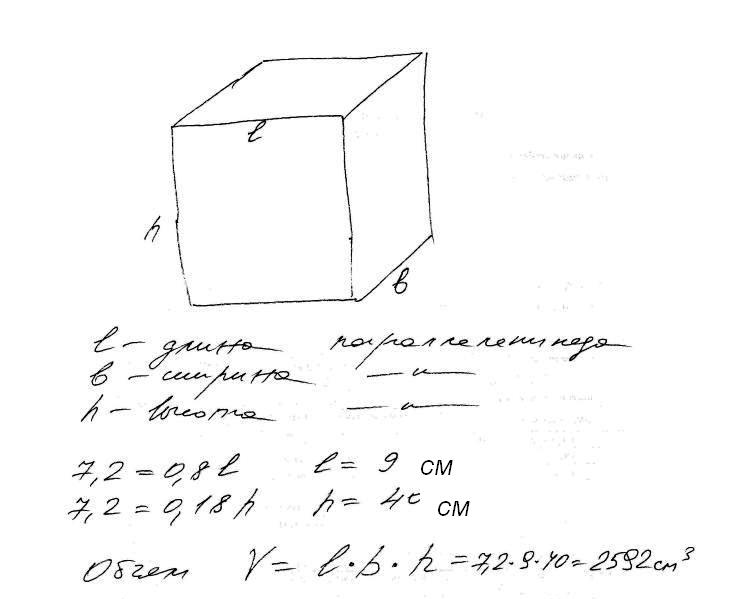 l
h
в
l – длина параллелепипеда
в – ширина — " —
h – высота — " —
7,2 = 0,8 l l = 9 см
7,2 = 0,18 h h = 40 см
Объем V = l · b · h = 7,2 · 9 · 40 = 2592 см³